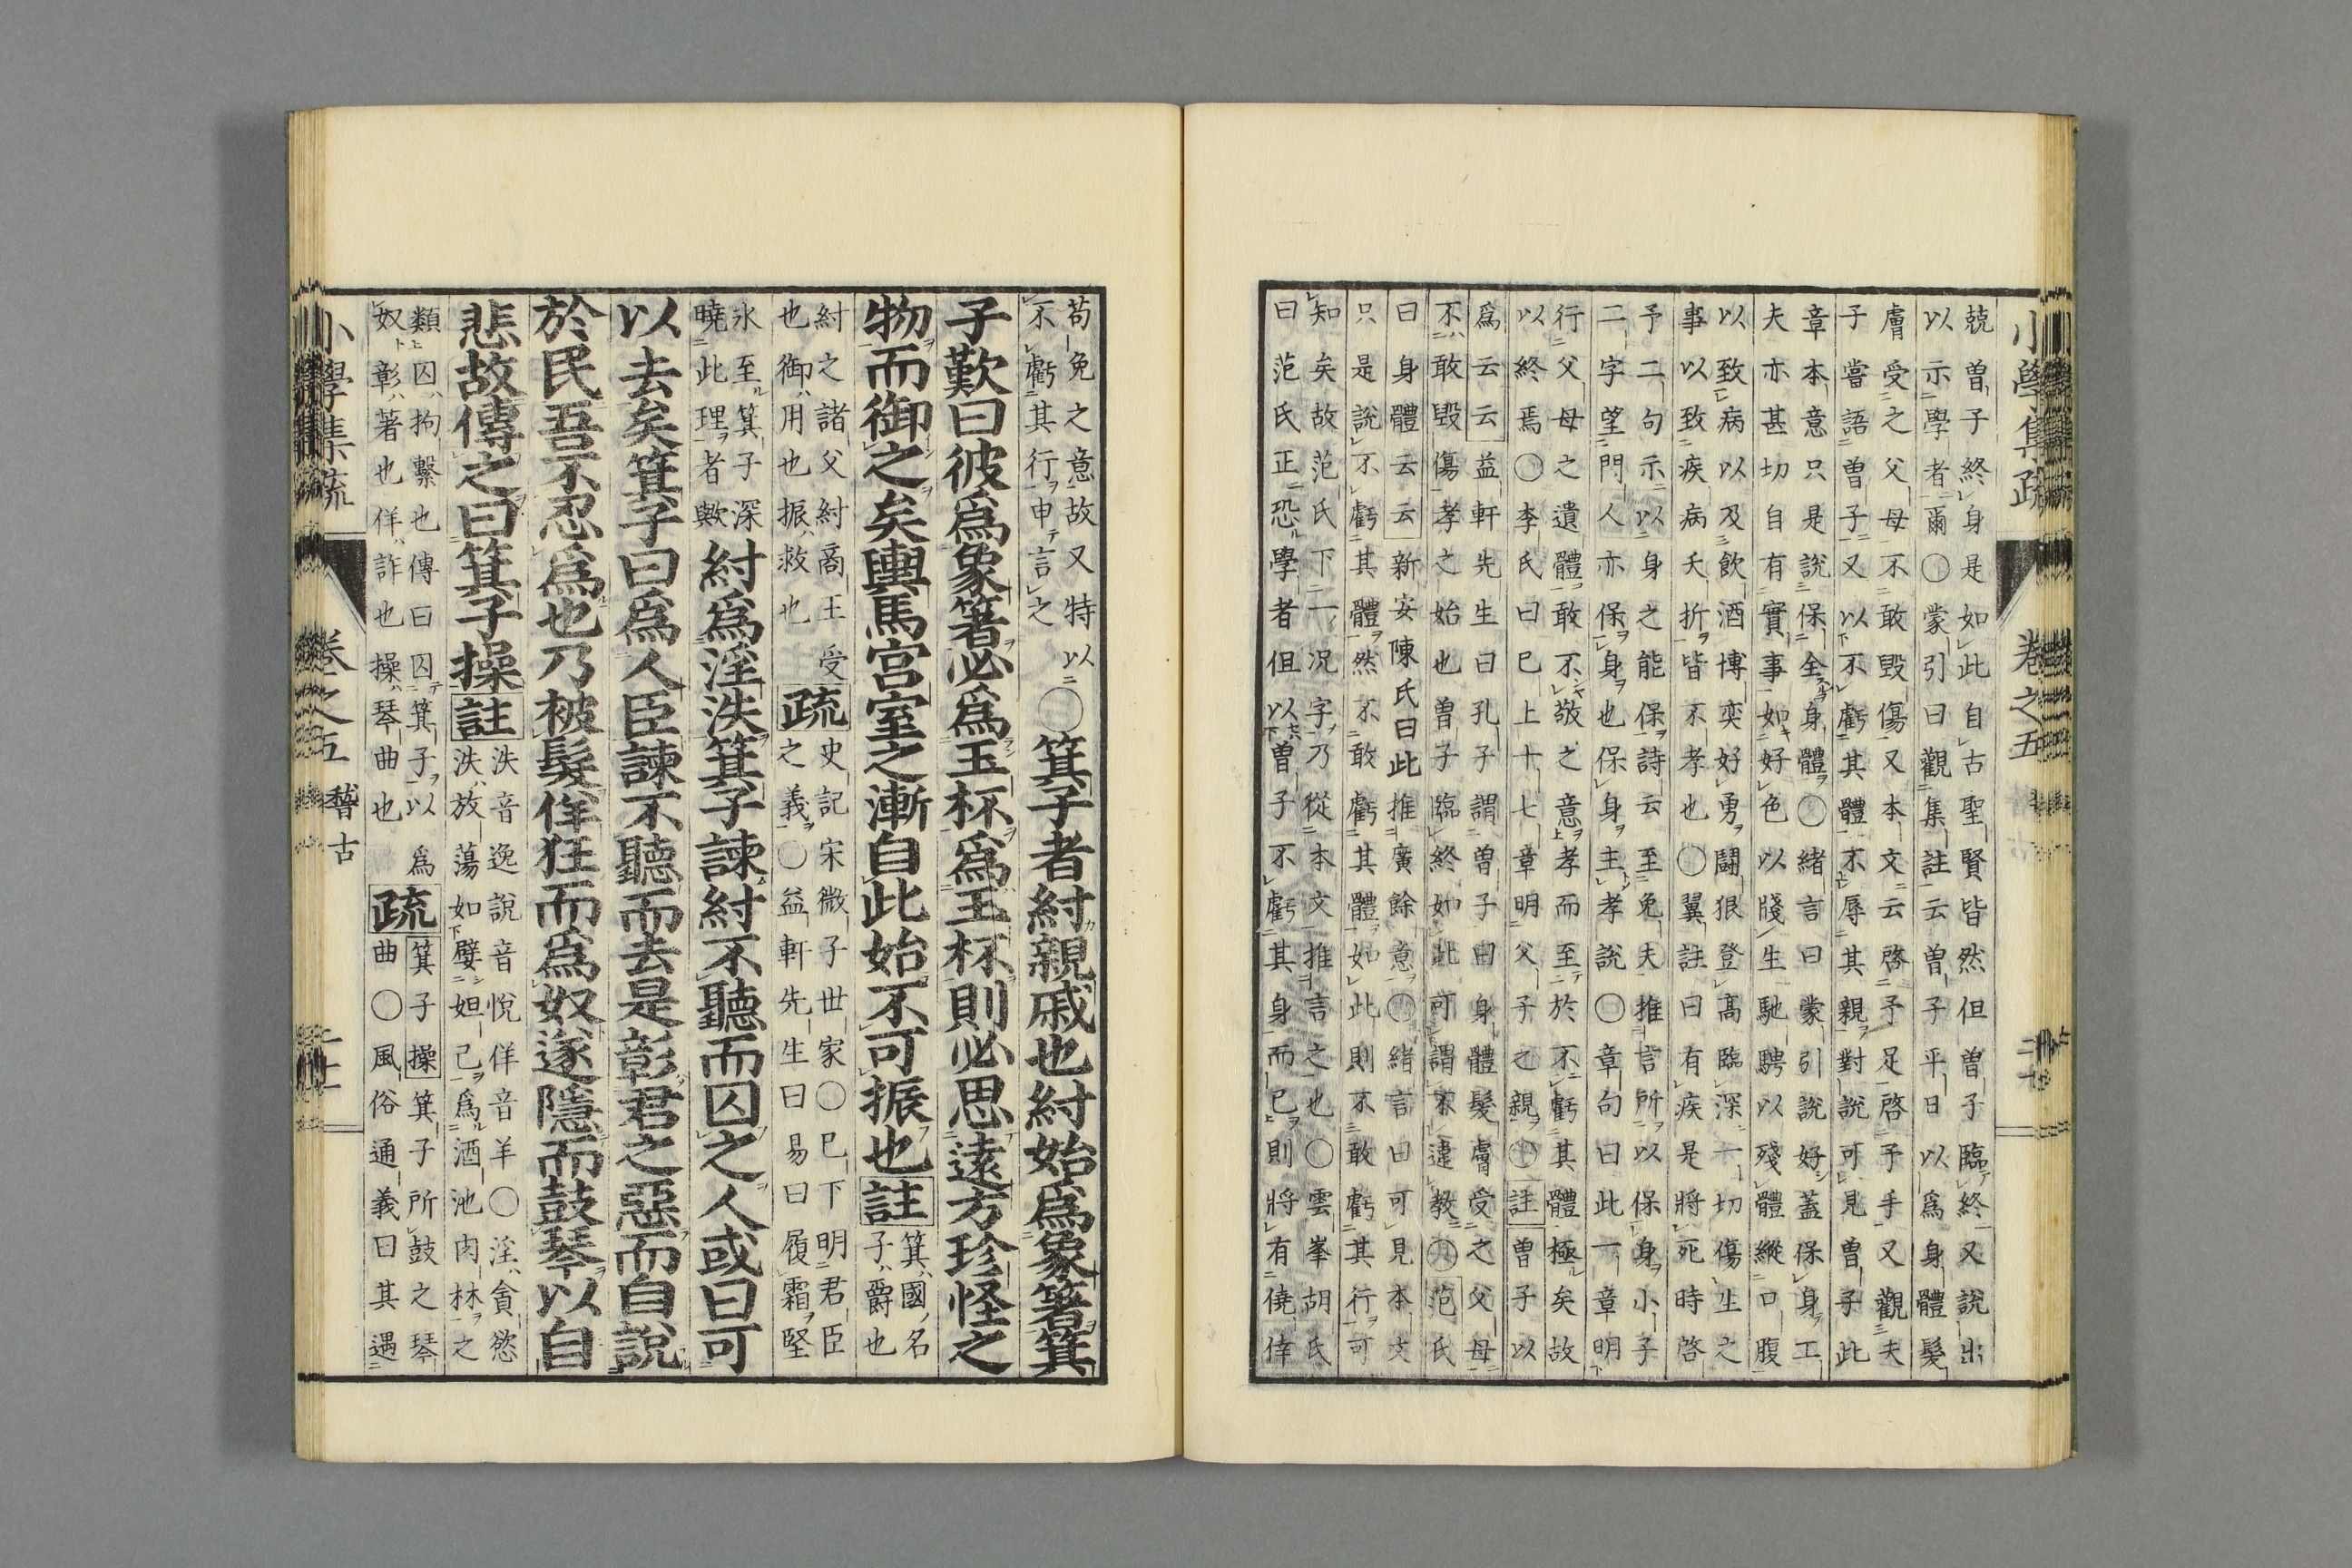 兢曽子終身是如此自古聖賢皆然但曽子臨終又說出
以示學者爾〇蒙引曰觀集註云曽子平日以爲身體髮
膚受之父母不敢毀傷又本文云啓予足啓予手又觀夫
子嘗語曽子又以不虧其體不辱其親對說可見曽子此
章本意只是說保全身體〇緒言曰蒙引說好蓋保身工
夫亦甚切自有實事如好色以賤生馳騁以殘體縱口腹
以致病以及飲酒博奕好勇鬪狠登高臨深一切傷生之
事以致疾病夭折皆不孝也〇翼註曰有疾是將死時啓
予二句示以身之能保詩云至免夫推言所以保身小子
二字望門人亦保身也保身主孝說〇章句曰此一章明
行父母之遺體敢不敬之意孝而至於不虧其體極矣故
以終焉〇李氏曰已上十七章明父子之親〇註曽子以
爲云云益軒先生曰孔子謂曽子曰身體髮膚受之父母
不敢毀傷孝之始也曽子臨終如此可謂不違教〇范氏
曰身體云云新安陳氏曰此推廣餘意〇緒言曰可見本文
只是說不虧其體然不敢虧其體如此則不敢虧其行可
知矣故范氏下一况字乃從本文推言之也〇雲峯胡氏
曰范氏正恐學者但以曽子不虧其身而已則將有僥倖
小學集疏 卷之五 二十
苟免之意故又特以
不虧其行申言之
〇箕子者紂親戚也紂始爲象箸箕
子歎曰彼爲象箸必爲玉杯爲玉杯則必思遠方珍怪之
物而御之矣輿馬宮室之漸自此始不可振也註
箕國名
子爵也
紂之諸父紂商王受
也御用也振救也
疏
史記宋微子世家〇已下明君臣
之義〇益軒先生曰易曰履霜堅
氷至箕子深
曉此理者歟
紂爲淫泆箕子諫紂不聽而囚之人或曰可
以去矣箕子曰爲人臣諫不聽而去是彰君之惡而自說
於民吾不忍爲也乃被髮佯狂而爲奴遂隱而鼓琴以自
悲故傳之曰箕子操註
泆音逸說音悅佯音羊〇淫貪慾
泆放蕩如嬖妲己爲酒池肉林之
類囚拘繫也傳曰囚箕子以爲
奴彰著也佯詐也操琴曲也
疏
箕子操箕子所鼓之琴
曲〇風俗通義曰其遇
小學集疏 卷之五 稽古